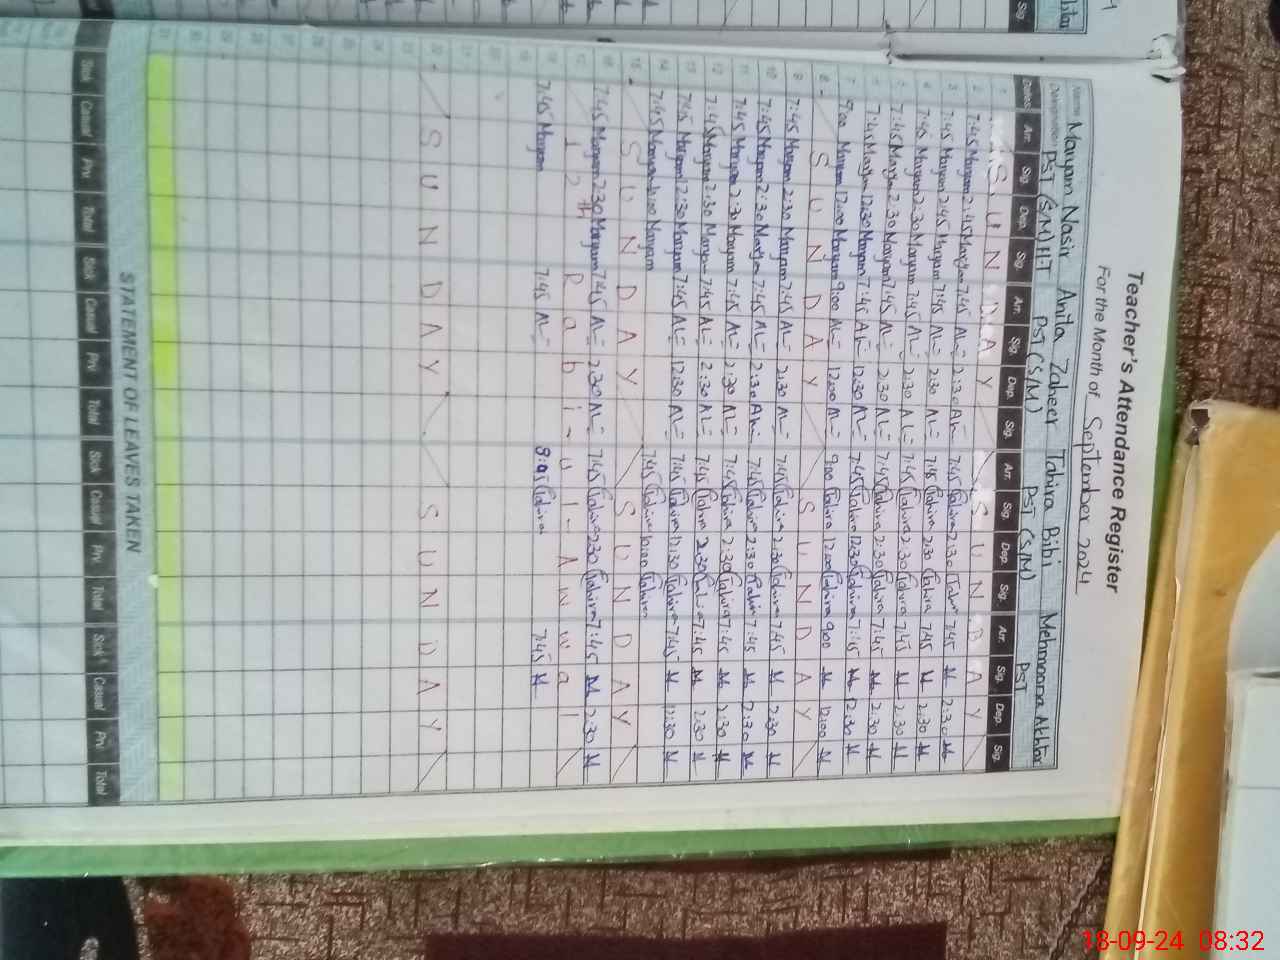 Teacher's Attendance Register
For the Month of September 2024
Name Maryam Nasir Anila Zaheer Tahira Bibi Mehmoona Akhtar
Designation PST (S/M) H-T PST (S/M) PST (S/M) PST
Dates Arr. Sig. Dep. Sig. Arr. Sig. Dep. Sig. Arr. Sig. Dep. Sig. Arr. Sig. Dep. Sig.
1 SUNDAY SUNDAY
2 7:45 Maryam 2:45 Maryam 7:45 2:30 7:45 Tahira 2:30 Tahira 7:45 2:30
3 7:45 Maryam 2:45 Maryam 7:45 2:30 7:45 Tahira 2:30 Tahira 7:45 2:30
4 7:45 Maryam 2:30 Maryam 7:45 2:30 7:45 Tahira 2:30 Tahira 7:45 2:30
5 7:45 Maryam 2:30 Maryam 7:45 2:30 7:45 Tahira 2:30 Tahira 7:45 2:30
6 7:45 Maryam 12:30 Maryam 7:45 12:30 7:45 Tahira 12:30 Tahira 7:45 12:30
7 9:00 Maryam 12:00 Maryam 9:00 12:00 9:00 Tahira 12:00 Tahira 9:00 12:00
8 SUNDAY SUNDAY
9 7:45 Maryam 2:30 Maryam 7:45 2:30 7:45 Tahira 2:30 Tahira 7:45 2:30
10 7:45 Maryam 2:30 Maryam 7:45 2:30 7:45 Tahira 2:30 Tahira 7:45 2:30
11 7:45 Maryam 2:30 Maryam 7:45 2:30 7:45 Tahira 2:30 Tahira 7:45 2:30
12 7:45 Maryam 2:30 Maryam 7:45 2:30 7:45 Tahira 2:30 Tahira 7:45 2:30
13 7:45 Maryam 12:30 Maryam 7:45 12:30 7:45 Tahira 12:30 Tahira 7:45 12:30
14 7:45 Maryam Maryam 7:45 Tahira Tahira
15 SUNDAY SUNDAY
16 7:45 Maryam 2:30 Maryam 7:45 2:30 7:45 Tahira 2:30 Tahira 7:45 2:30
17 12th Rabi-ul-Awwal
18 7:45 Maryam 7:45 8:05 Tahira 7:45
19
20
21
22 SUNDAY SUNDAY
23
24
25
26
27
28
29
30
31
STATEMENT OF LEAVES TAKEN
Sick Casual Prv. Total Sick Casual Prv. Total Sick Casual Prv. Total Sick Casual Prv. Total
18-09-24 08:32